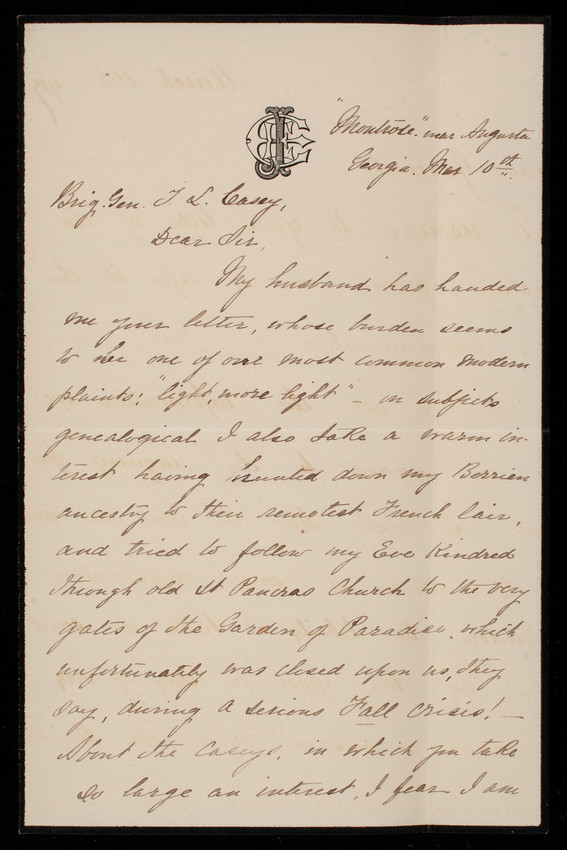 "Montrose." near Augusta
Georgia. Mar 10th.
Brig. Gen. T. L. Casey,
Dear Sir,
My husband has handed
me your letter, whose burden seems
to be one of our most common modern
plaints: "light, more light" – on subjects
genealogical. I also take a warm in-
terest having hunted down my Berrien
ancestry to their remotest French lair,
and tried to follow my Eve Kindred
through old St Pancras Church to the very
gates of the Garden of Paradise, which
unfortunately was closed upon us, they
say, during a serious Fall crisis! –
About the Caseys, in which you take
so large an interest, I fear I am